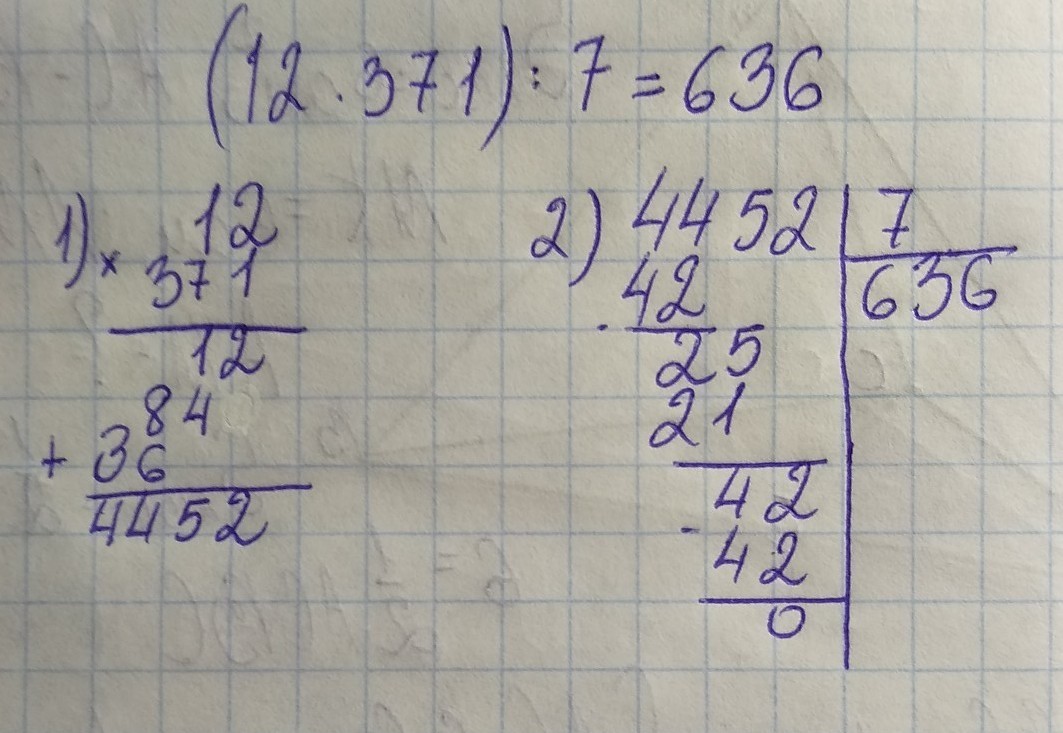 (12 · 371) : 7 = 636
1) 12
× 371
12
84
+ 36
4452
2) 4452 | 7
42 | 636
- 25
21
42
- 42
0